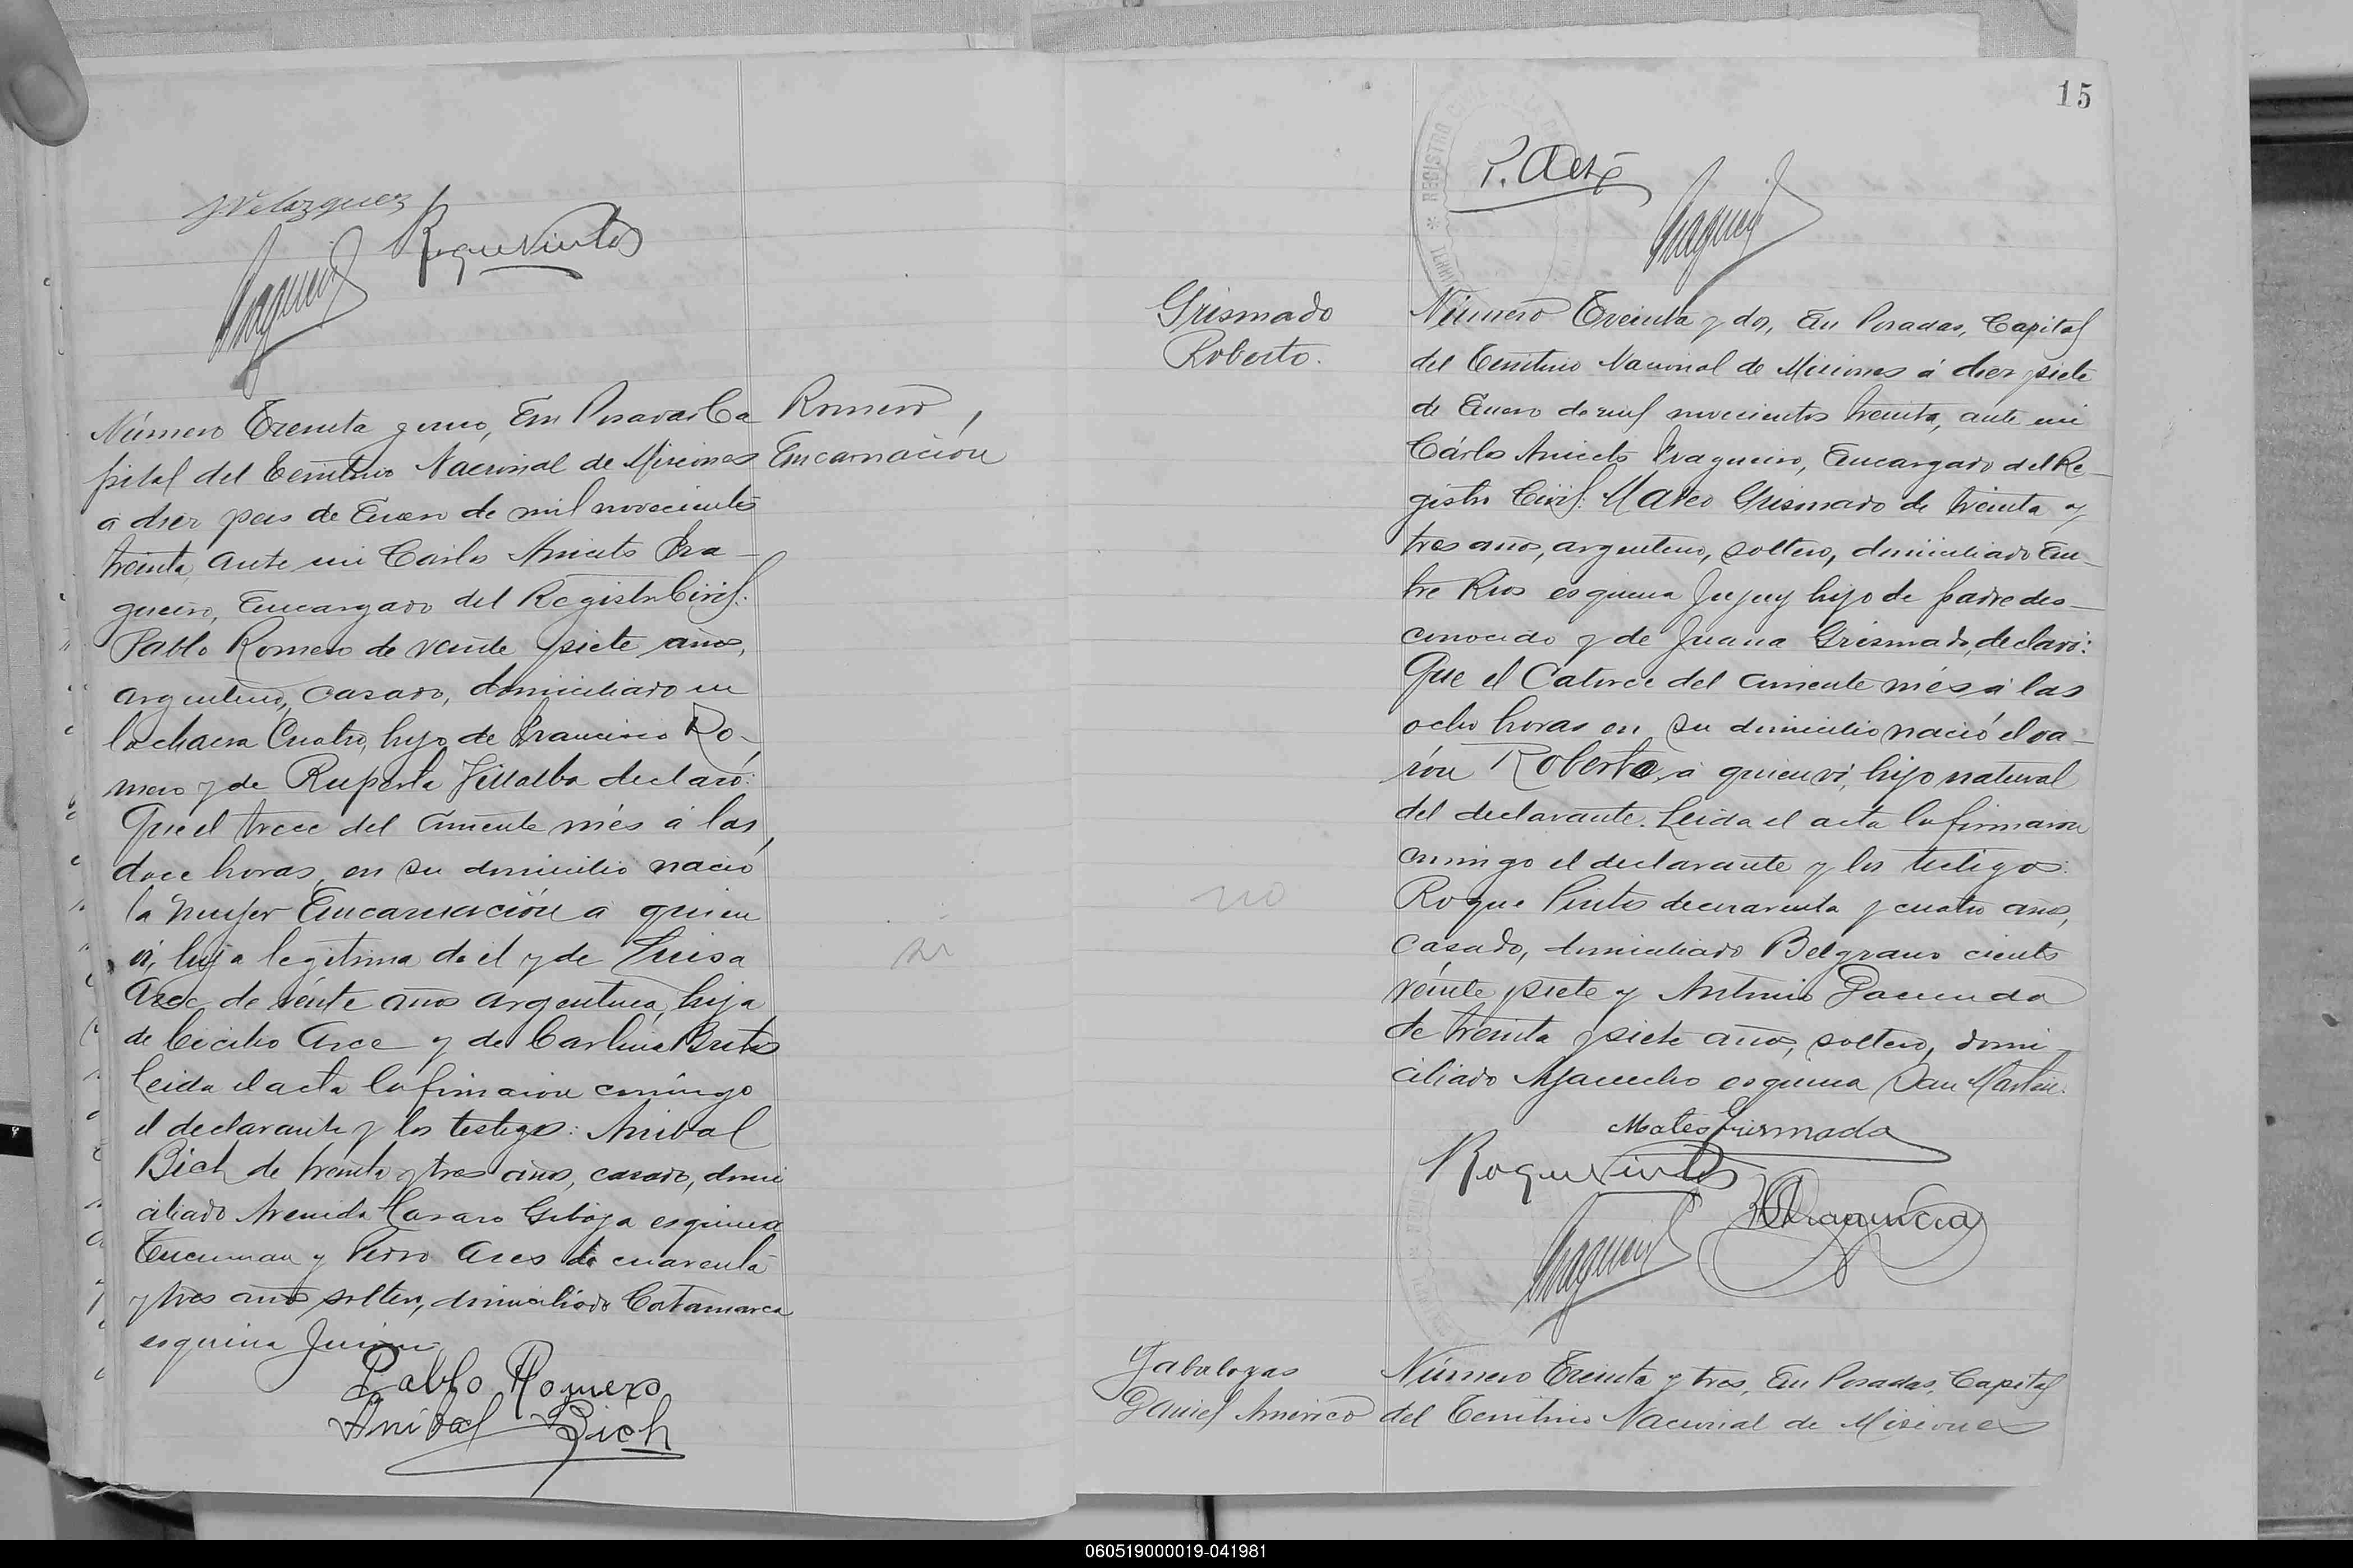 J. Velazquez
Roque Pintos
Número Treinta y uno, En Posadas Ca
pital del Territorio Nacional de Misiones
á diez y seis de Enero de mil novecientos
treinta, ante mi Carlos Aniceto Fra-
gueiro, Encargado del Registro Civil:
Pablo Romero de veinte y siete años,
argentino, casado, domiciliado en
la chacra Cuatro, hijo de Francisco Ro-
mero y de Ruperta Villalba declaró:
Que el trece del corriente més á las
doce horas, en su domicilio nació
la mujer Encarnación a quien
vi, hija legitima de el y de Luisa
Arce, de veinte años argentina, hija
de Cecilio Arce y de Carlina Britos
Leida el acta la firmaron conmigo
el declarante y los testigos: Anibal
Bich de treinta y tres años, casado, domi
ciliado Avenida Lazaro Giboja esquina
Tucuman y Pedro Aces de cuarenta
y tres años soltero, domiciliado Catamarca
esquina Junin
Pablo Romero
Anibal Bich
Romero,
Encarnación
si
15
REGISTRO
P. Aces
Grismado
Roberto.
Número Treinta y dos, En Posadas, Capital
del Territorio Nacional de Misiones á diez y siete
de Enero de mil novecientos treinta, ante mi
Cárlos Aniceto Fragueiro, Encargado del Re-
gistro Civil: Mateo Grismado de treinta y
tres años, argentino, soltero, domiciliado En-
tre Rios esquina Jujuy hijo de padre des-
conocido y de Juana Grismado, declaró:
Que el Catorce del corriente més á las
ocho horas en su domicilio nació el va-
rón Roberto, a quien vi, hijo natural
del declarante. Leida el acta la firmaron
conmigo el declarante y los testigos:
Roque Pintos de cuarenta y cuatro años,
casado, domiciliado Belgrano ciento
veinte y siete y Antonio
de treinta y siete años, soltero, domi-
ciliado Ayacucho esquina San Martin.
no
Mateo Grismado
Roque Pintos
Daniel Américo
Número Treinta y tres, En Posadas, Capital
del Territorio Nacional de Misiones
060519000019-041981